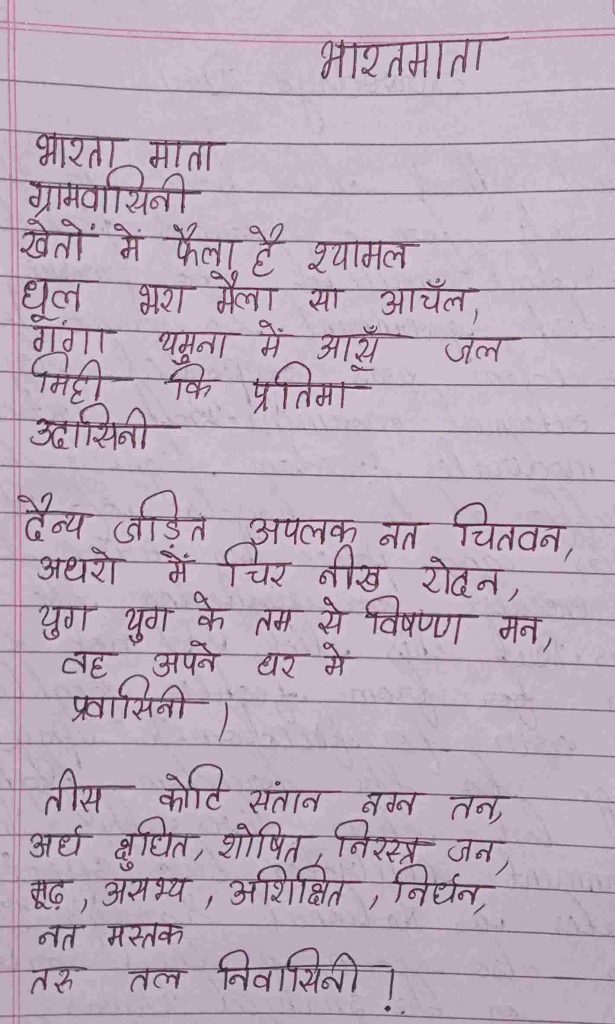 भारतमाता
भारता माता
ग्रामवासिनी
खेतों में फैला है श्यामल
धूल भरा मैला सा आचँल,
गंगा यमुना में आसूँ जल
मिट्टी कि प्रतिमा
उदासिनी
दैन्य जड़ित अपलक नत चितवन,
अधरो में चिर नीरव रोदन,
युग युग के तम से विषण्ण मन,
वह अपने घर में
प्रवासिनी।
तीस कोटि संतान नग्न तन,
अर्ध क्षुधित, शोषित, निरस्त्र जन,
मूढ़, असभ्य, अशिक्षित, निर्धन,
नत मस्तक
तरु तल निवासिनी!